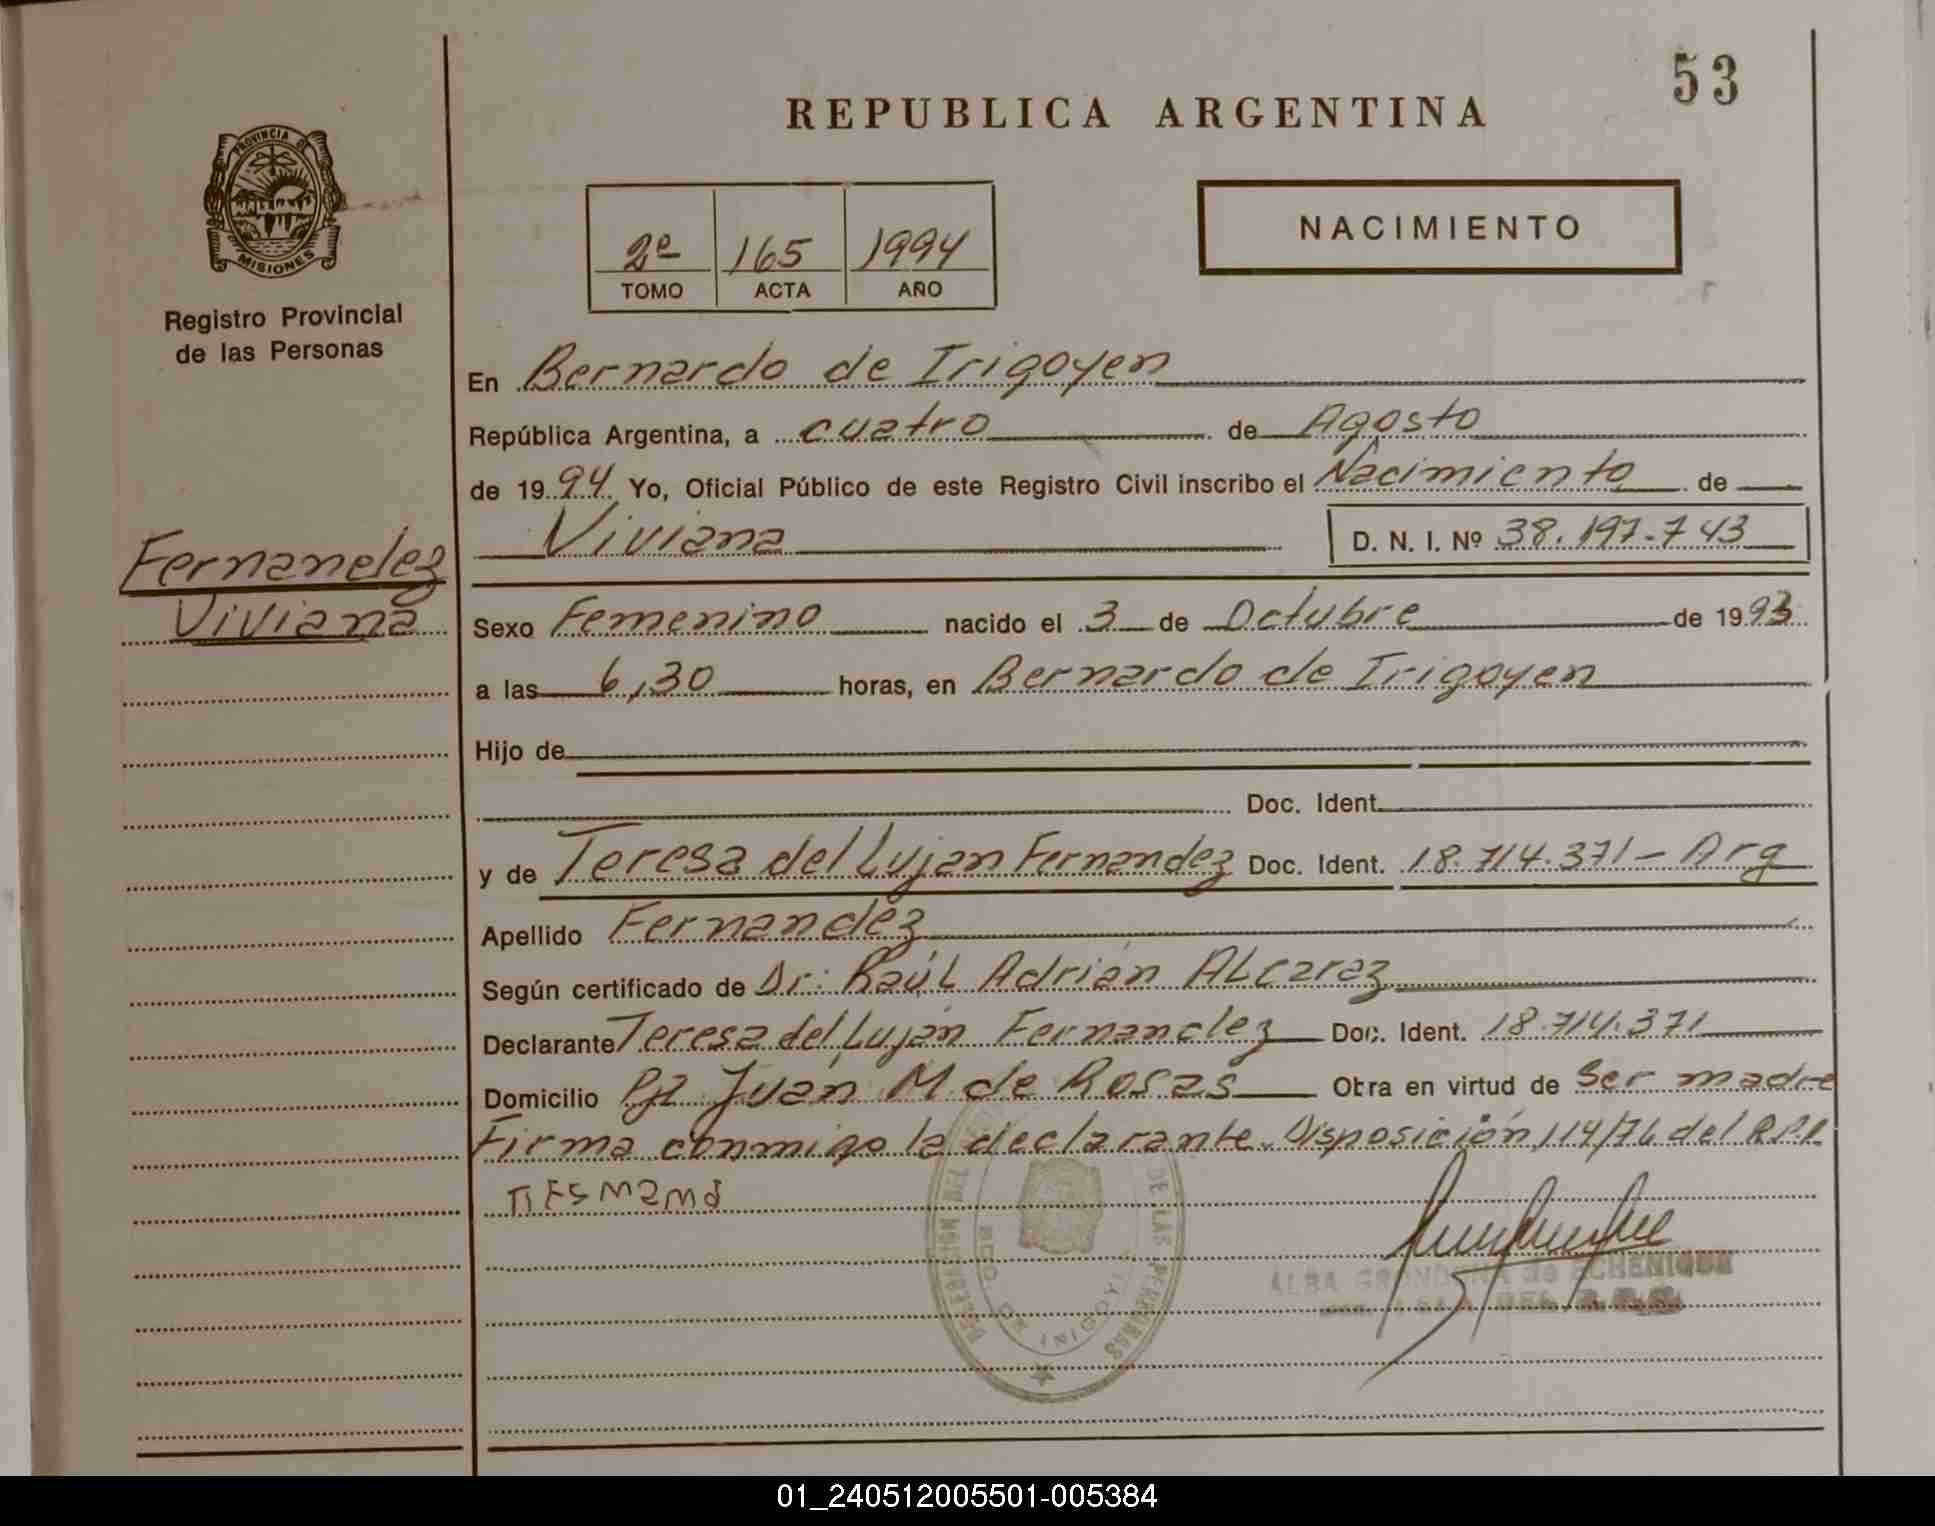 53
REPUBLICA ARGENTINA
PROVINCIA DE
MISIONES
Registro Provincial
de las Personas
2º 165 1994
TOMO ACTA AÑO
NACIMIENTO
En Bernardo de Irigoyen
República Argentina, a cuatro de Agosto
de 1994 Yo, Oficial Público de este Registro Civil inscribo el Nacimiento de
Viviana D. N. I. Nº 38.197.743
Fernandez
Viviana
Sexo Femenino nacido el 3 de Octubre de 1993
a las 6,30 horas, en Bernardo de Irigoyen
Hijo de
Doc. Ident.
y de Teresa del Lujan Fernandez Doc. Ident. 18.714.371 - Arg
Apellido Fernandez
Según certificado de Dr: Raúl Adrián Alcaraz
Declarante Teresa del Luján Fernandez Doc. Ident. 18.714.371
Domicilio Pje Juan M. de Rosas Obra en virtud de Ser madre
Firma conmigo la declarante. Disposición 114/76 del R.P.P.
DE LAS PERSONAS
BDO. DE IRIGOYEN
ALBA GRONDONA de ECHENIQUE
01_240512005501-005384